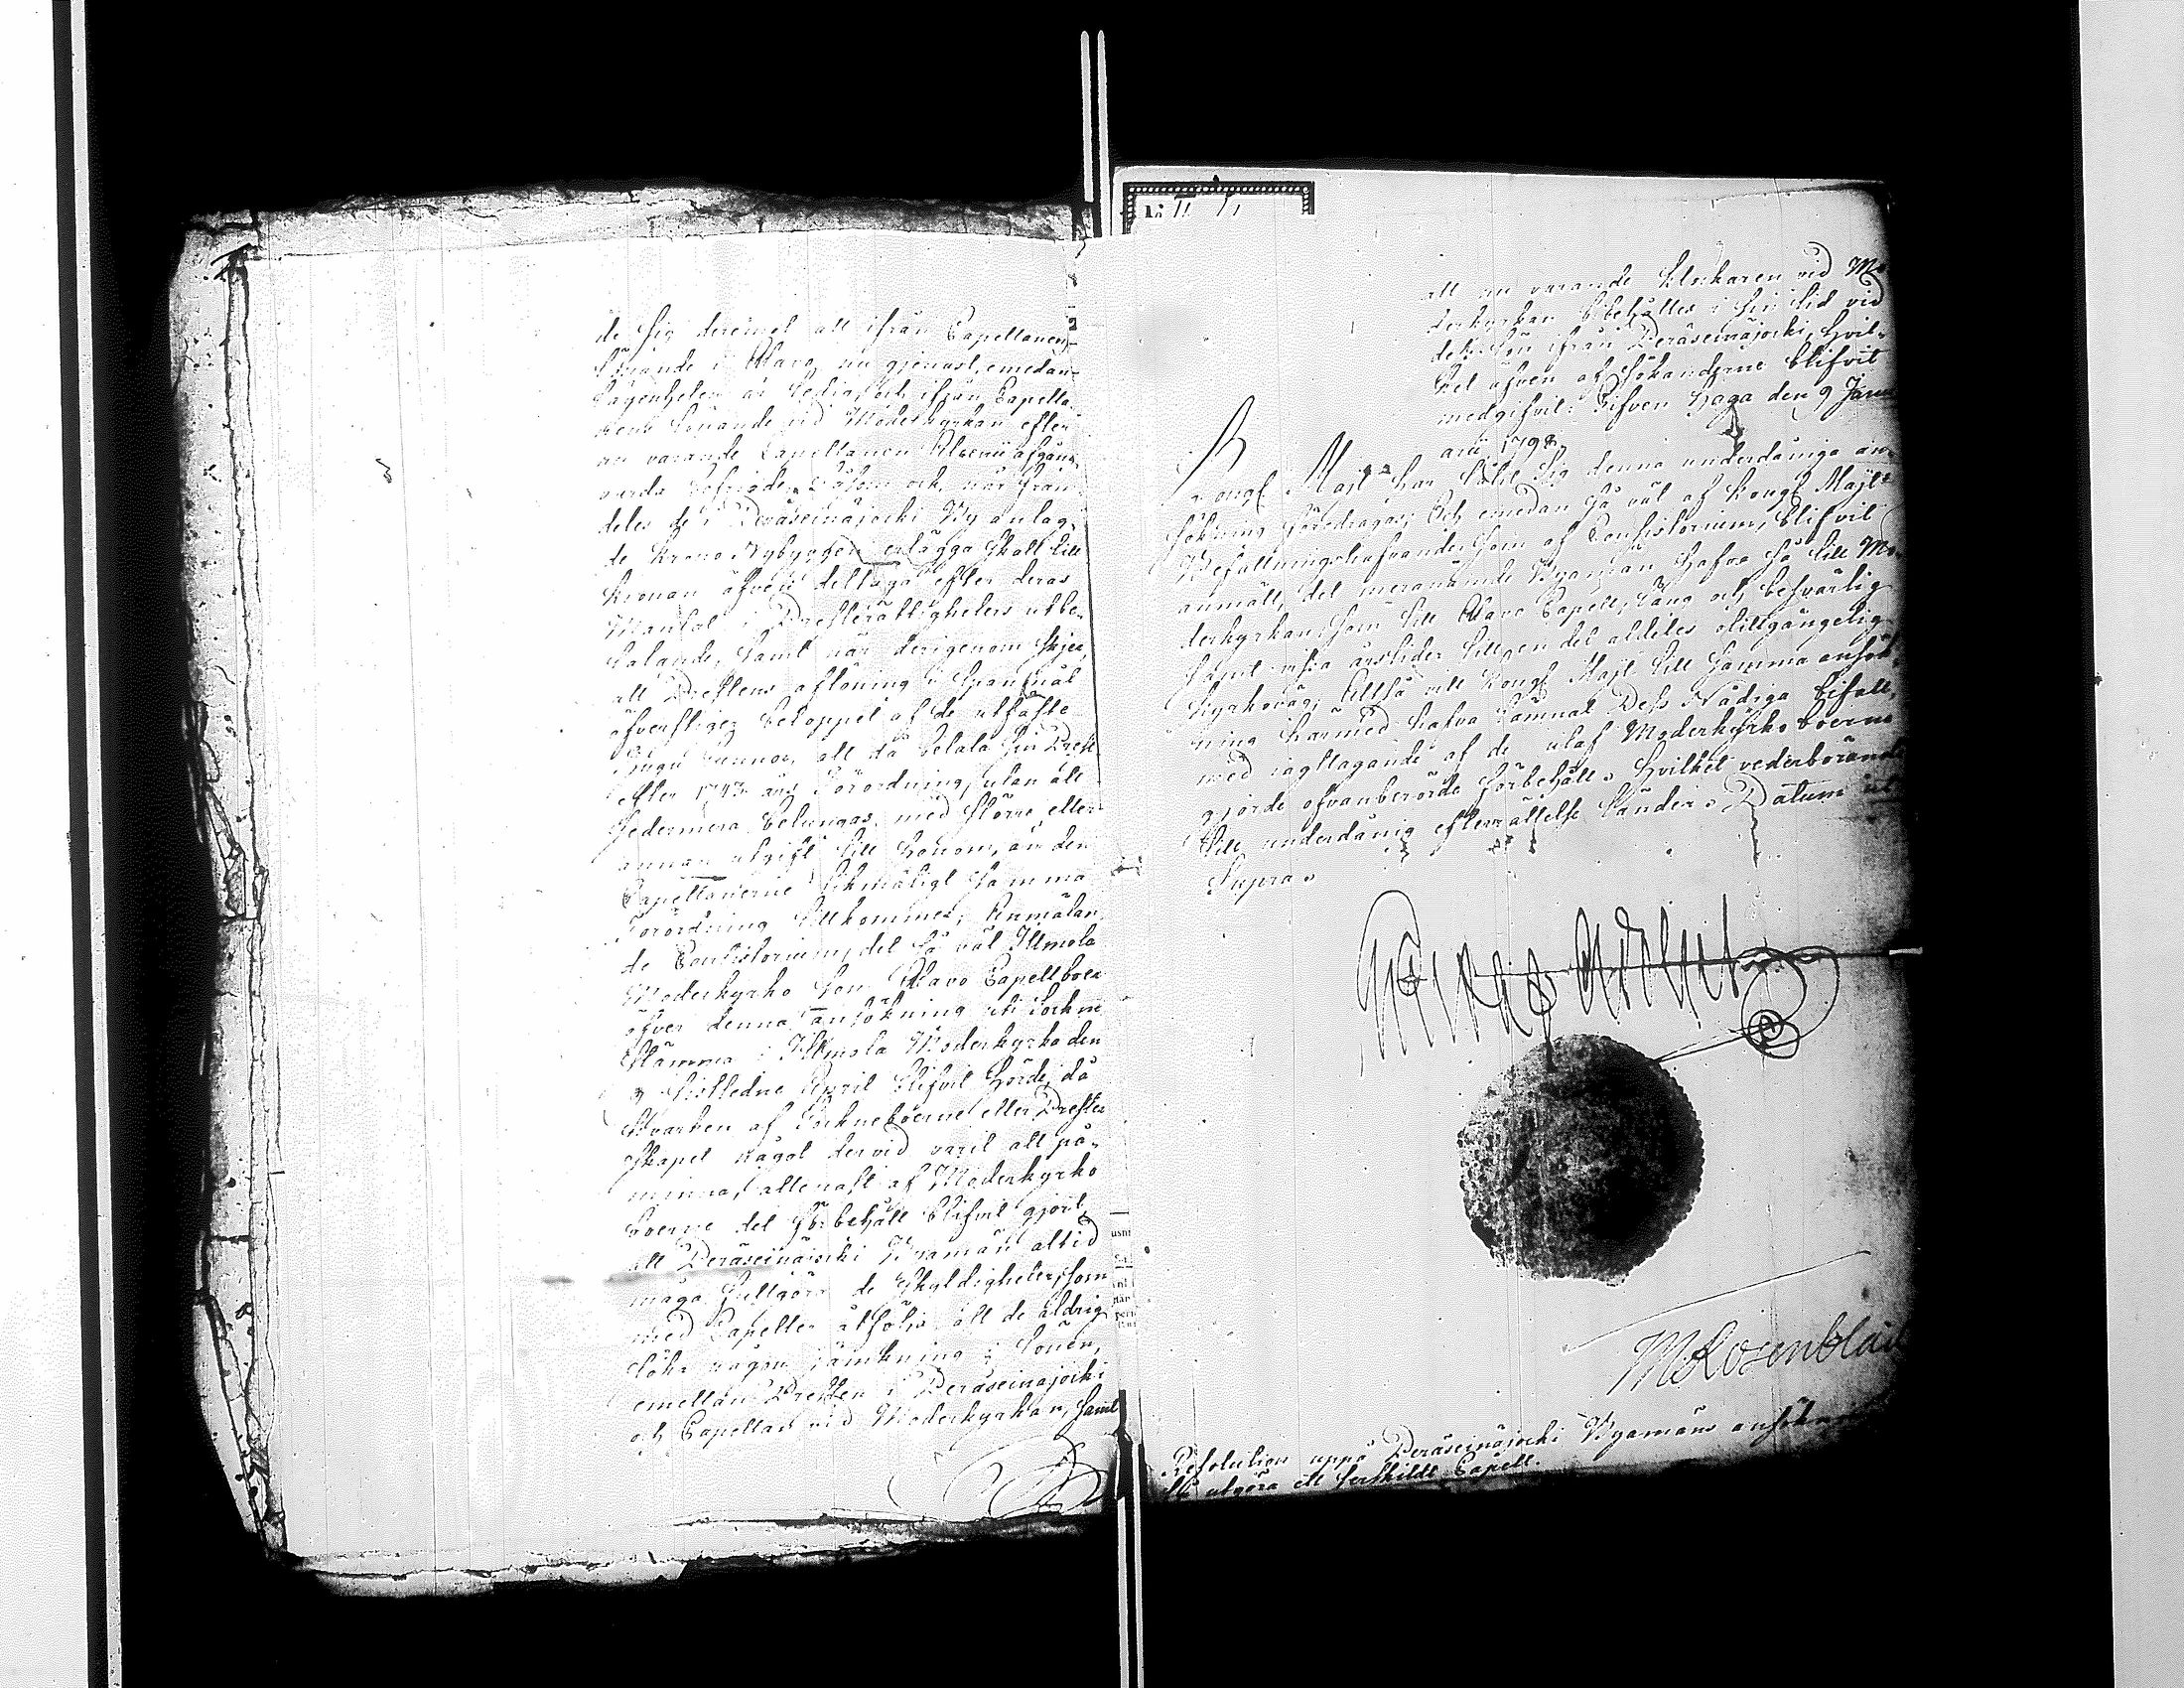 de sig dereimot att ifrån Capellanens
lönande i Alavo nu genast, emedan
lägenheten är ledig, och ifrån Capella-
nens lönande vid Moderkyrkan efter
nu varande Capellanen Alcenii afgång
varda befriade, såsom ock, när fram-
deles de i Peräseinäjocki By anlag-
de Krono Nybyggen erlägga skatt till
Kronan äfven deltaga efter deras
Mantal i Prästerättighetens utbe-
talande, samt när derigenom skjer,
att Prestens aflöning i Spanmål
öfverstiger beloppet af de utfäste
Tjugu Tunnor, att då betala sin Prest
efter 1743 års Förordning, utan att
sedermera betungas med större eller
annan utgift till honom, än den
Capellanerne likmätigt samma
Förordning tillkommer; Anmälan-
de Consistorium, det så väl Ilmola
Moderkyrko som Alavo Capellboer
öfver denna ansökning uti Sockne
Stämma i Ilmola Moderkyrka den
9 sistledne April blifvit hörde, då
hvarken af Sockneboerne eller Prester-
skapet något dervid varit att på-
minna, allenast af Moderkyrko
boerne det förbehåll blifvit gjort,
att Peräseinäjocki Byamän altid
måga fullgöra de skyldigheter, som
med Capellet åtfölja att de aldrig
söka någon jämkning i lönen,
emellan Presten i Peräseinäjocki
och Capellan vid Moderkyrkan, samt
att nu varande Klockaren vid Mo-
derkyrkan bibehålles i sin tid vid
dess lön ifrån Peräseinäjocki, hvil-
ket äfven af sökanderne blifvit
medgifvit: Gifven Haga den 9 Janu
arii 1798.
Kongl. Maj:t har låtit sig denna underdåniga an-
sökning föredragas; Och emedan så väl af Kongl. Maj:ts
Befallningshafvande som af Consistorium, blifvit
anmält, det meranämnde Byamän hafva så till Mo-
derkyrkan som till Alavo Capell, lång och besvärlig
samt vissa årstider till en del aldeles otillgängelig
kyrkoväg; Altså vill Kongl. Maj:t till samma ansök-
ning härmed hafva lämnat Dess Nådiga bifall,
med iagttagande af de utaf Moderkyrko boerne
gjorde ofvanberörde förbehåll. Hvilket vederbörande
till underdånig efterrättelse länder. Datum ut
Supra.
Gustaf Adolph
M Rosenblad
Resolution uppå Peräseinäjocki Byamäns ansök
utgöra ett serskildt Capell.